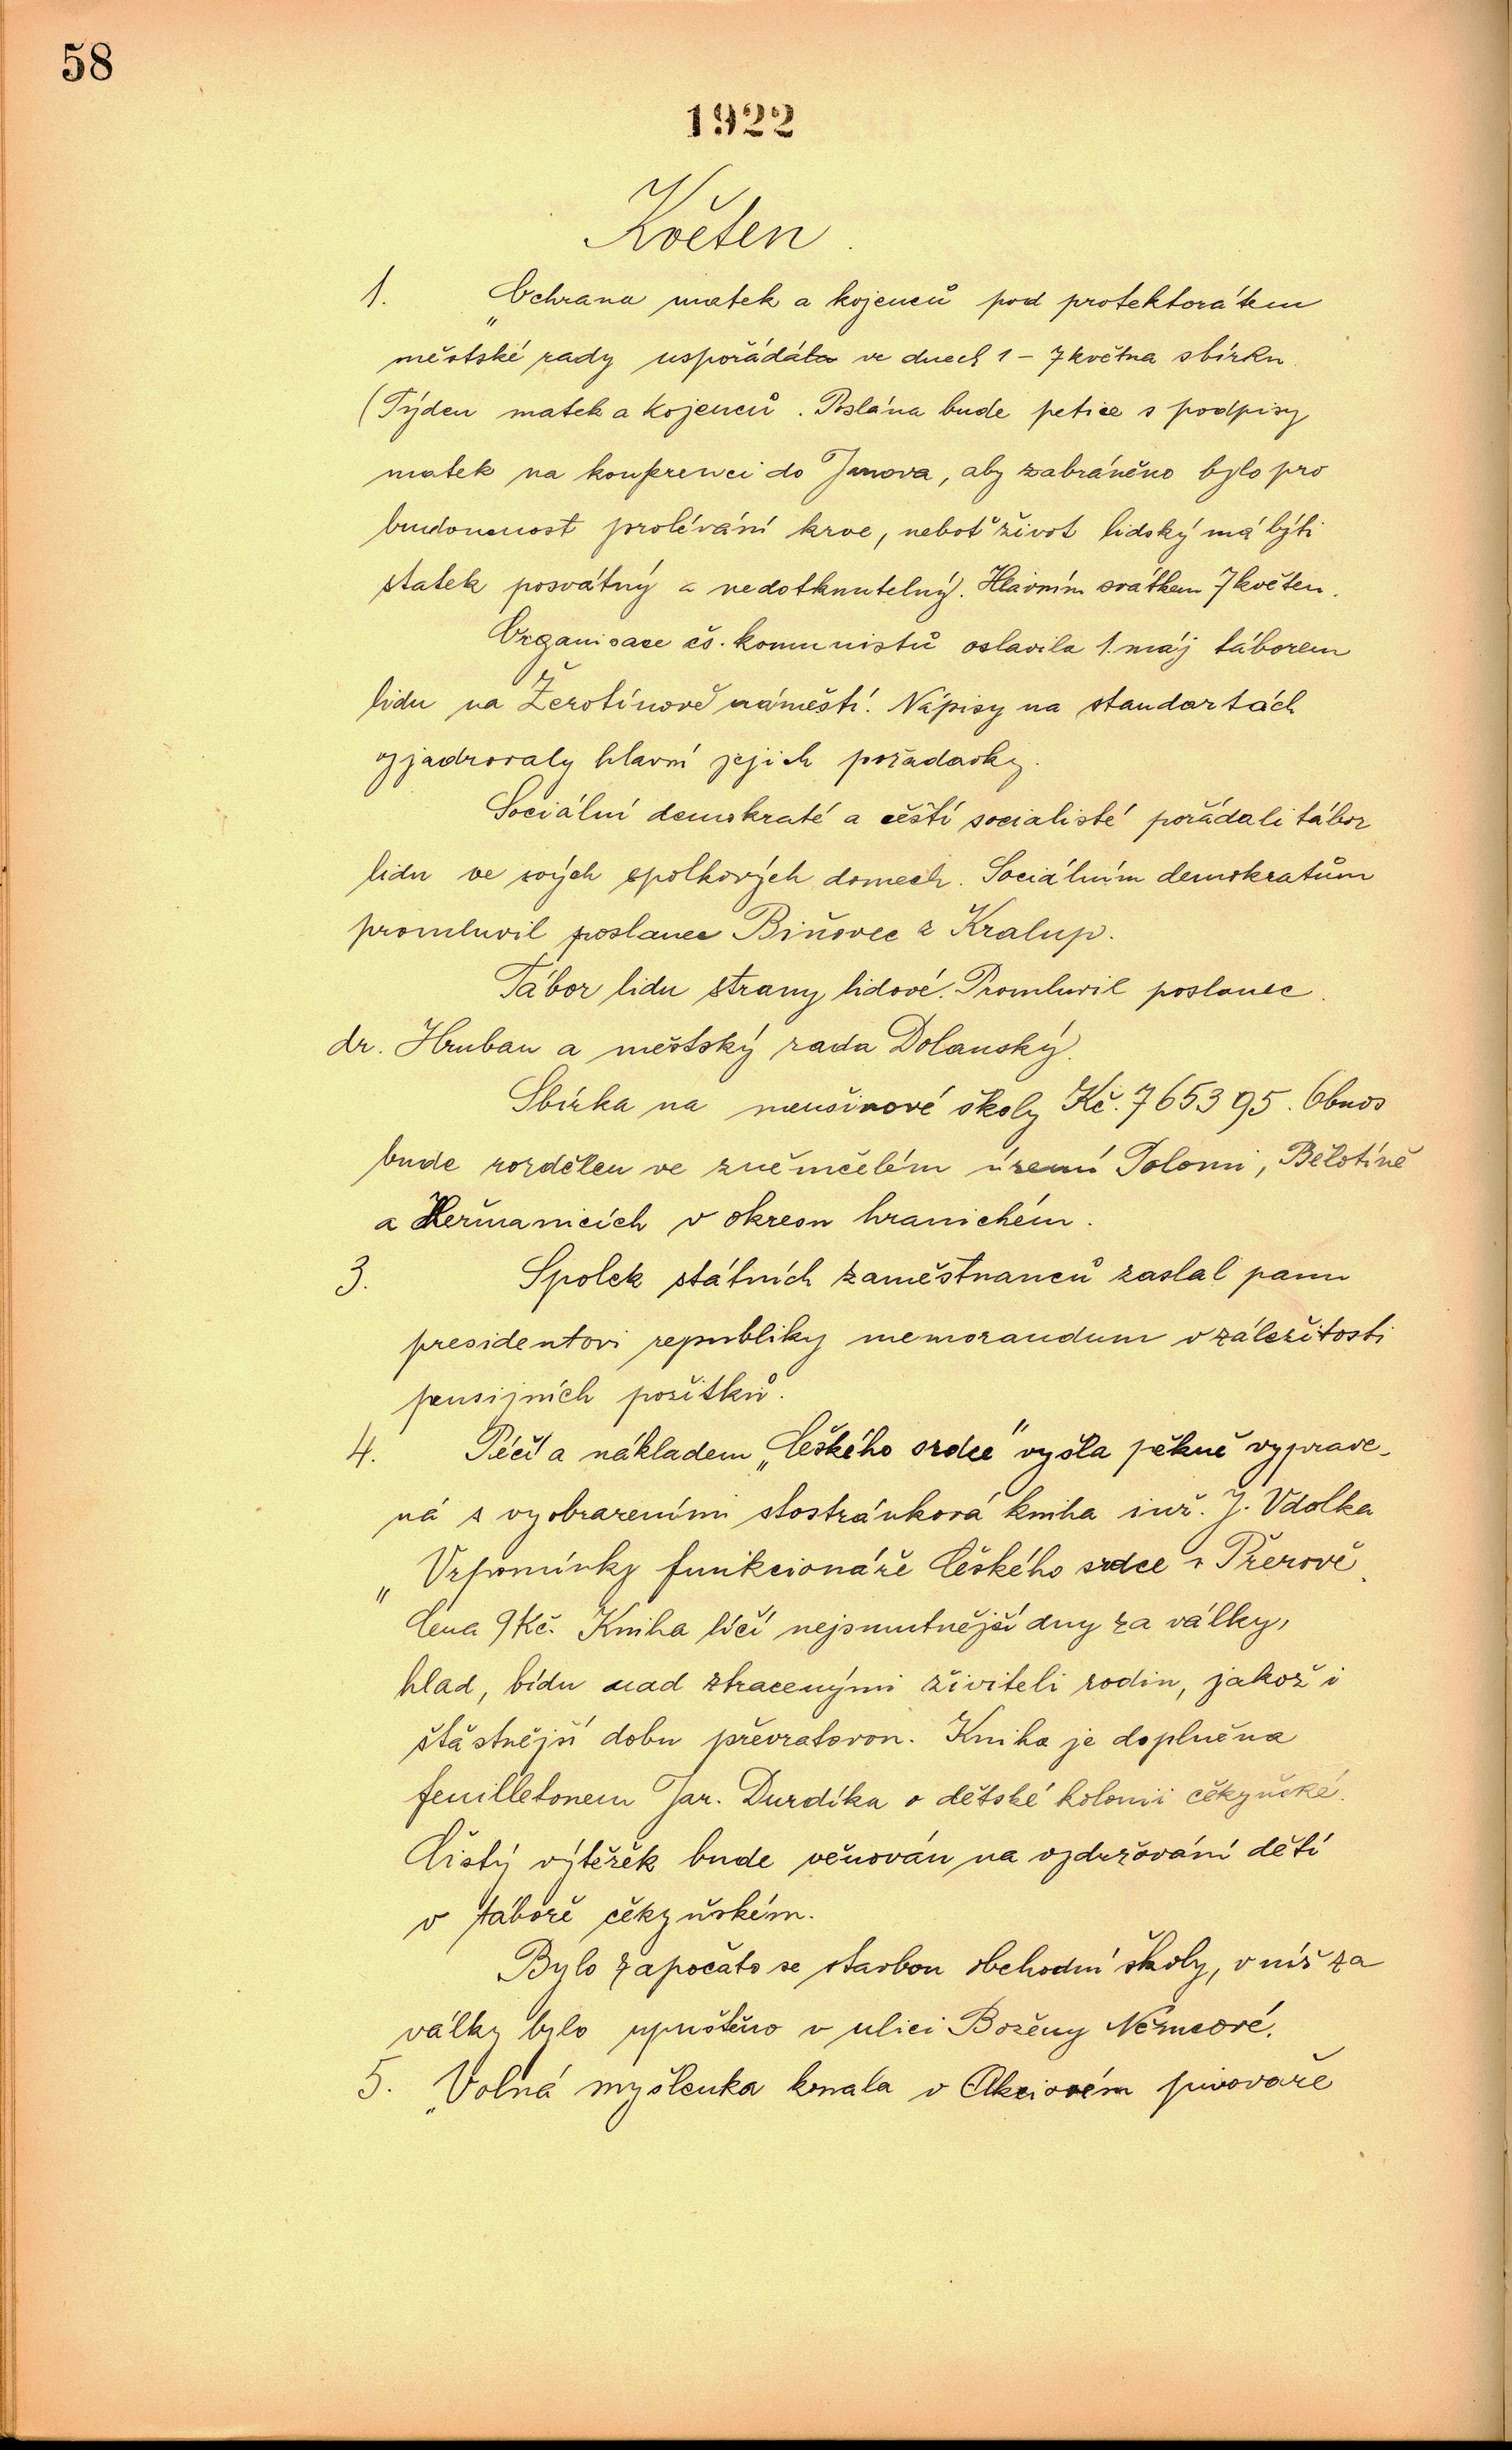 58
1922
Květen.
1. „Ochrana matek a kojenců pod protektorátem
městské rady uspořádála ve dnech 1 – 7 května sbírku.
(Týden matek a kojenců. Poslána bude petice s podpisy
matek na konferenci do Janova, aby zabráněno bylo pro
budoucnost prolévání krve, neboť život lidský má býti
statek posvátný a nedotknutelný). Hlavním svátkem 7 květen.
Organisace čs. komunistů oslavila 1. máj táborem
lidu na Žerotínově náměstí. Nápisy na standartách
vyjadrovaly hlavní jejich požadavky.
Sociální demokraté a čeští socialisté pořádali tábor
lidu ve svých spolkových domech. Sociálním demokratům
promluvil poslanec Biňovec z Kralup.
Tábor lidu strany lidové. Promluvil poslanec
dr. Hruban a městský rada Dolanský.
Sbírka na menšinové školy Kč. 7653 95. Obnos
bude rozdělen ve zněmčelém území Polomi, Bělotíně
a Heřmanicích v okresu hranickém.
3. Spolek státních zaměstnanců zaslal panu
presidentovi republiky memorandum v záležitosti
pensijních požitků.
4. Péčí a nákladem „Českého srdce" vyšla pěkně vyprave-
ná s vyobrazeními stostránková kniha inž. J. Vdolka
„Vzpomínky funkcionáře Českého srdce v Přerově.
Cena 9 Kč. Kniha líčí nejsmutnější dny za války,
hlad, bídu nad ztracenými živiteli rodin, jakož i
šťastnější dobu převratovou. Kniha je doplněna
feuilletonem Jar. Durdíka o dětské kolonii čekyňské.
Čistý výtěžek bude věnován na vydržování dětí
v táboře čekyňském.
Bylo započato se stavbou obchodní školy, v níž za
války bylo upuštěno v ulici Boženy Němcové.
5. „Volná myšlenka konala v Akciovém pivovaře